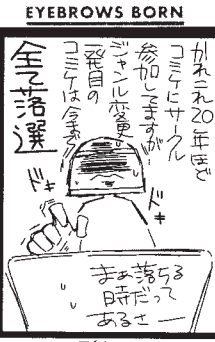 EYEBROWS BORN
かれこれ20年ほど
コミケにサークル
参加してますが
ジャンル変更
一発目の
コミケは今まで
全て落選
ドキ
ドキ
まぁ落ちる
時だって
あるさー